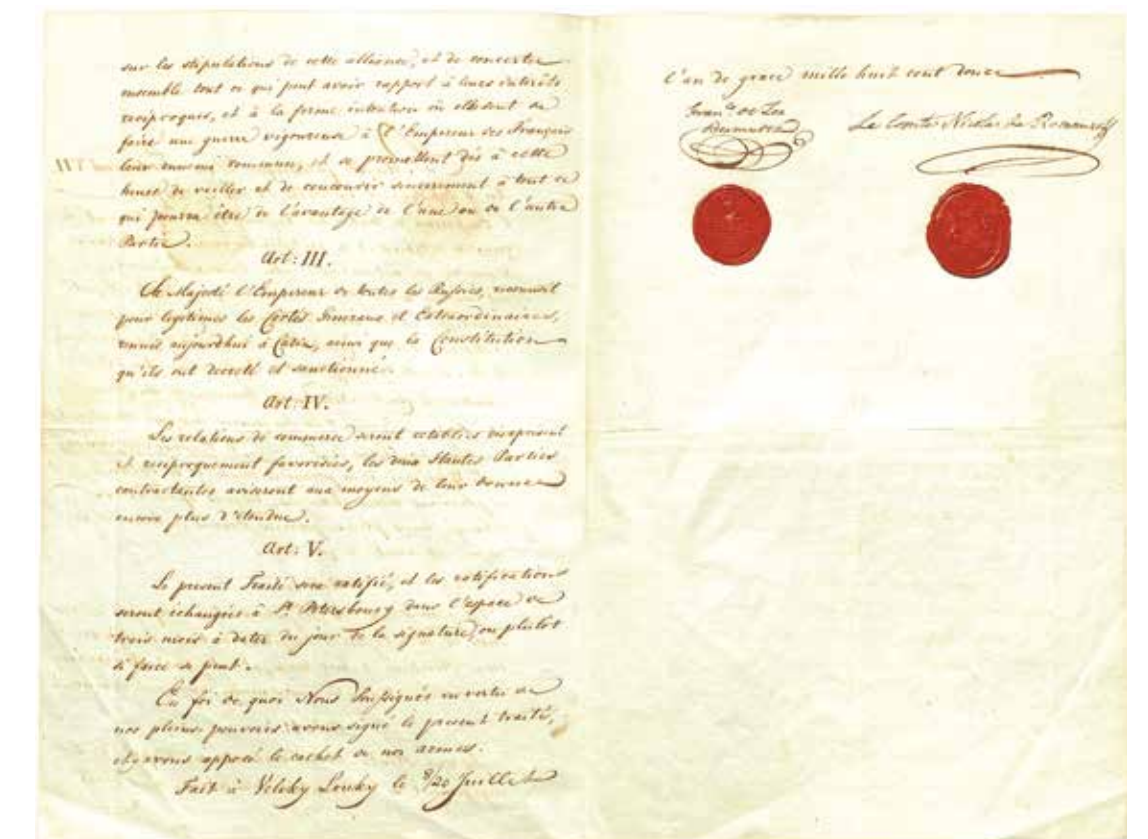 sur les stipulations de cette alliance, et de concerter
ensemble tout ce qui peut avoir rapport à leurs intérêts
réciproques, et à la ferme intention où elles sont de
faire une guerre vigoureuse à l'Empereur des Français
leur ennemi commun, et se promettent dès à cette
heure de veiller et de concourir sincerement à tout ce
qui pourra être de l'avantage de l'une ou de l'autre
Partie.
Art: III.
Sa Majesté l'Empereur de toutes les Russies, reconnoit
pour legitimes les Cortès Generaux et Extraordinaires,
réunis aujourdhui à Cadix, ainsi que la Constitution
qu'ils ont decreté et sanctionné.
Art: IV.
Les relations de commerce seront retablies dès à présent
et reciproquement favorisées, les deux Hautes Parties
contractantes aviseront aux moyens de leur donner
encore plus d'étendue.
Art: V.
Le present Traité sera ratifié, et les ratifications
seront échangées à St. Petersbourg dans l'espace de
trois mois à dater du jour de la signature, ou plutot
si faire se peut.
En foi de quoi Nous Soussignés en vertu de
nos pleins-pouvoirs avons signé le present traité,
et y avons apposé le cachet de nos armes.
Fait à Veliky Louky le 8/20 Juillet
l'an de grace mille huit cent douze
Franco. de Zea
Bermudez
Le Comte Nicolas de Romanzoff
VII